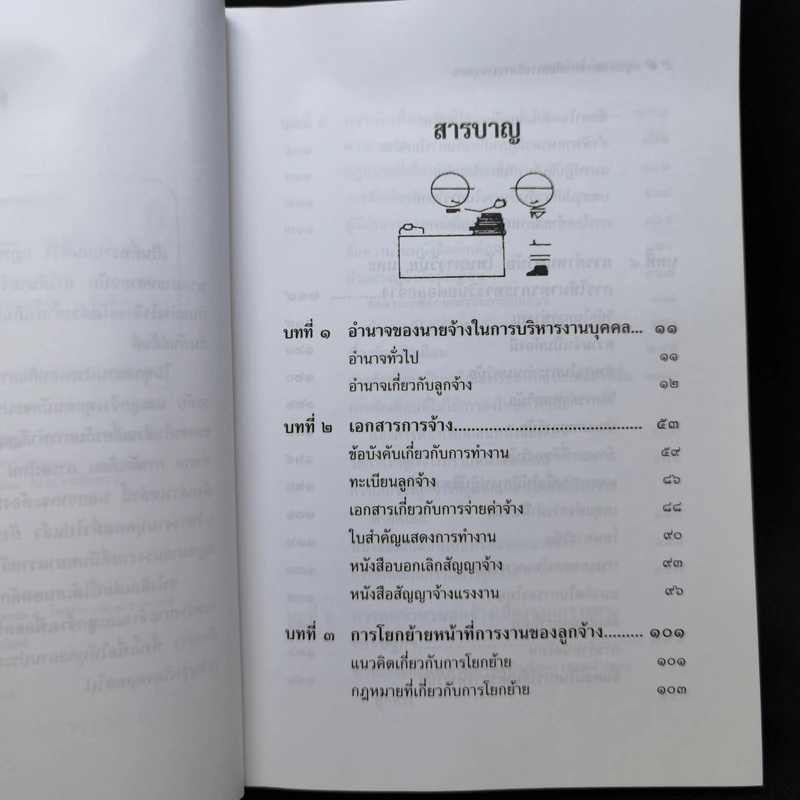 สารบาญ
บทที่ ๑ อำนาจของนายจ้างในการบริหารงานบุคคล... ๑๑
อำนาจทั่วไป ๑๑
อำนาจเกี่ยวกับลูกจ้าง ๑๒
บทที่ ๒ เอกสารการจ้าง........................................ ๕๓
ข้อบังคับเกี่ยวกับการทำงาน ๕๙
ทะเบียนลูกจ้าง ๘๖
เอกสารเกี่ยวกับการจ่ายค่าจ้าง ๘๘
ใบสำคัญแสดงการทำงาน ๙๐
หนังสือบอกเลิกสัญญาจ้าง ๙๓
หนังสือสัญญาจ้างแรงงาน ๙๖
บทที่ ๓ การโยกย้ายหน้าที่การงานของลูกจ้าง......... ๑๐๑
แนวคิดเกี่ยวกับการโยกย้าย ๑๐๑
กฎหมายที่เกี่ยวกับการโยกย้าย ๑๐๓